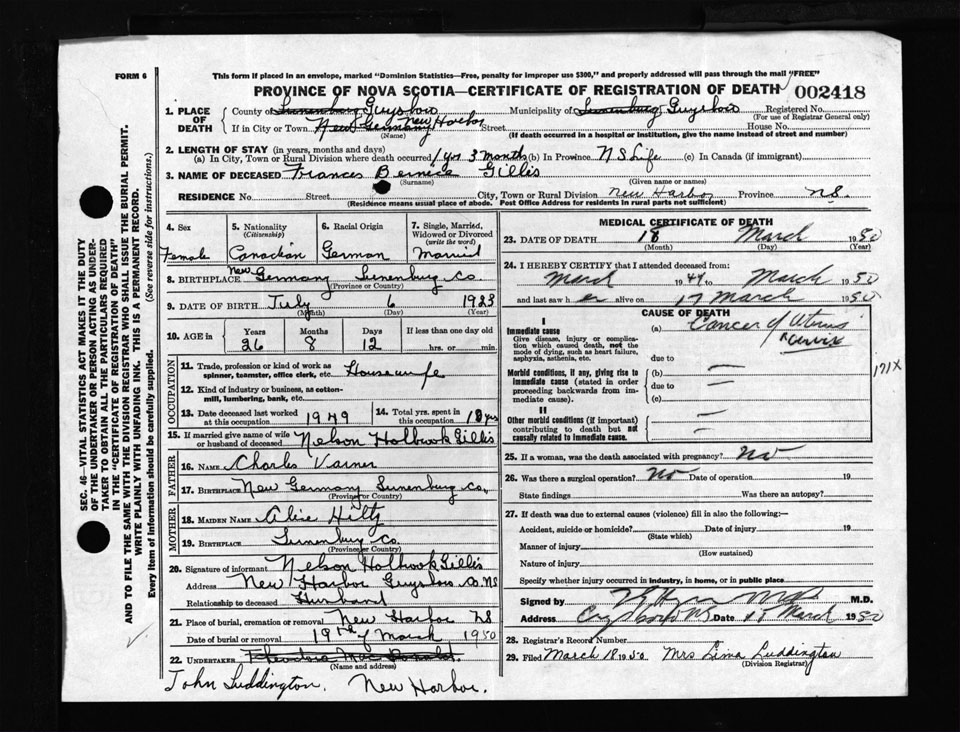 FORM 6
This form if placed in an envelope, marked "Dominion Statistics—Free, penalty for improper use $300," and properly addressed will pass through the mail "FREE"
PROVINCE OF NOVA SCOTIA—CERTIFICATE OF REGISTRATION OF DEATH
002418
1. PLACE OF DEATH
County of Lunenburg Guysboro Municipality of Lunenburg Guysboro Registered No.
(For use of Registrar General only)
If in City or Town New Germany New Harbor Street House No.
(Name) (If death occurred in a hospital or institution, give the name instead of street and number)
2. LENGTH OF STAY (in years, months and days)
(a) In City, Town or Rural Division where death occurred 1 yrs 3 months (b) In Province N S Life (c) In Canada (if immigrant)
3. NAME OF DECEASED Frances Berneice Gillis
(Surname) (Given name or names)
RESIDENCE No. Street City, Town or Rural Division New Harbor Province N.S.
(Residence means usual place of abode. Post Office Address for residents in rural parts not sufficient)
4. Sex
Female
5. Nationality
(Citizenship)
Canadian
6. Racial Origin
German
7. Single, Married, Widowed or Divorced
(write the word)
Married
8. BIRTHPLACE New Germany Lunenburg Co
(Province or Country)
9. DATE OF BIRTH July 6 1923
(Month) (Day) (Year)
10. AGE in Years Months Days If less than one day old
26 8 12 hrs. or min.
OCCUPATION
11. Trade, profession or kind of work as spinner, teamster, office clerk, etc. Housewife
12. Kind of industry or business, as cotton-mill, lumbering, bank, etc.
13. Date deceased last worked at this occupation 1949
14. Total yrs. spent in this occupation yrs
15. If married give name of wife or husband of deceased Nelson Holbrook Gillis
FATHER
16. NAME Charles Varner
17. BIRTHPLACE New Germany Lunenburg Co.,
(Province or Country)
MOTHER
18. MAIDEN NAME Alice Hiltz
19. BIRTHPLACE Lunenburg Co.
(Province or Country)
20. Signature of informant Nelson Holbrook Gillis
Address New Harbor Guysboro Co. NS
Relationship to deceased Husband
21. Place of burial, cremation or removal New Harbor NS
Date of burial or removal 19th of March 1950
22. UNDERTAKER Theodore Mac Donald.
(Name and address)
John Luddington. New Harbor.
MEDICAL CERTIFICATE OF DEATH
23. DATE OF DEATH 18 March 1950
(Month) (Day) (Year)
24. I HEREBY CERTIFY that I attended deceased from:
March 1949 to March 1950
and last saw her alive on 17 March 1950
CAUSE OF DEATH
I
Immediate cause
Give disease, injury or complication which caused death, not the mode of dying, such as heart failure, asphyxia, asthenia, etc.
(a) Cancer of Uterus
Cervix
due to
Morbid conditions, if any, giving rise to immediate cause (stated in order proceeding backwards from immediate cause).
(b) —
due to —
(c)
171X
II
Other morbid conditions (if important) contributing to death but not causally related to immediate cause.
25. If a woman, was the death associated with pregnancy? No
26. Was there a surgical operation? No Date of operation 19
State findings Was there an autopsy?
27. If death was due to external causes (violence) fill in also the following:—
Accident, suicide or homicide? Date of injury 19
(State which)
Manner of injury
(How sustained)
Nature of injury
Specify whether injury occurred in industry, in home, or in public place
Signed by M.D.
Address Date March 1950
28. Registrar's Record Number
29. Filed March 18 1950 Mrs Luddington
(Division Registrar)
SEC. 46—VITAL STATISTICS ACT MAKES IT THE DUTY OF THE UNDERTAKER OR PERSON ACTING AS UNDERTAKER TO OBTAIN ALL THE PARTICULARS REQUIRED IN THE "CERTIFICATE OF REGISTRATION OF DEATH" AND TO FILE THE SAME WITH THE DIVISION REGISTRAR WHO SHALL ISSUE THE BURIAL PERMIT.
WRITE PLAINLY WITH UNFADING INK. THIS IS A PERMANENT RECORD.
Every item of Information should be carefully supplied. (See reverse side for instructions.)